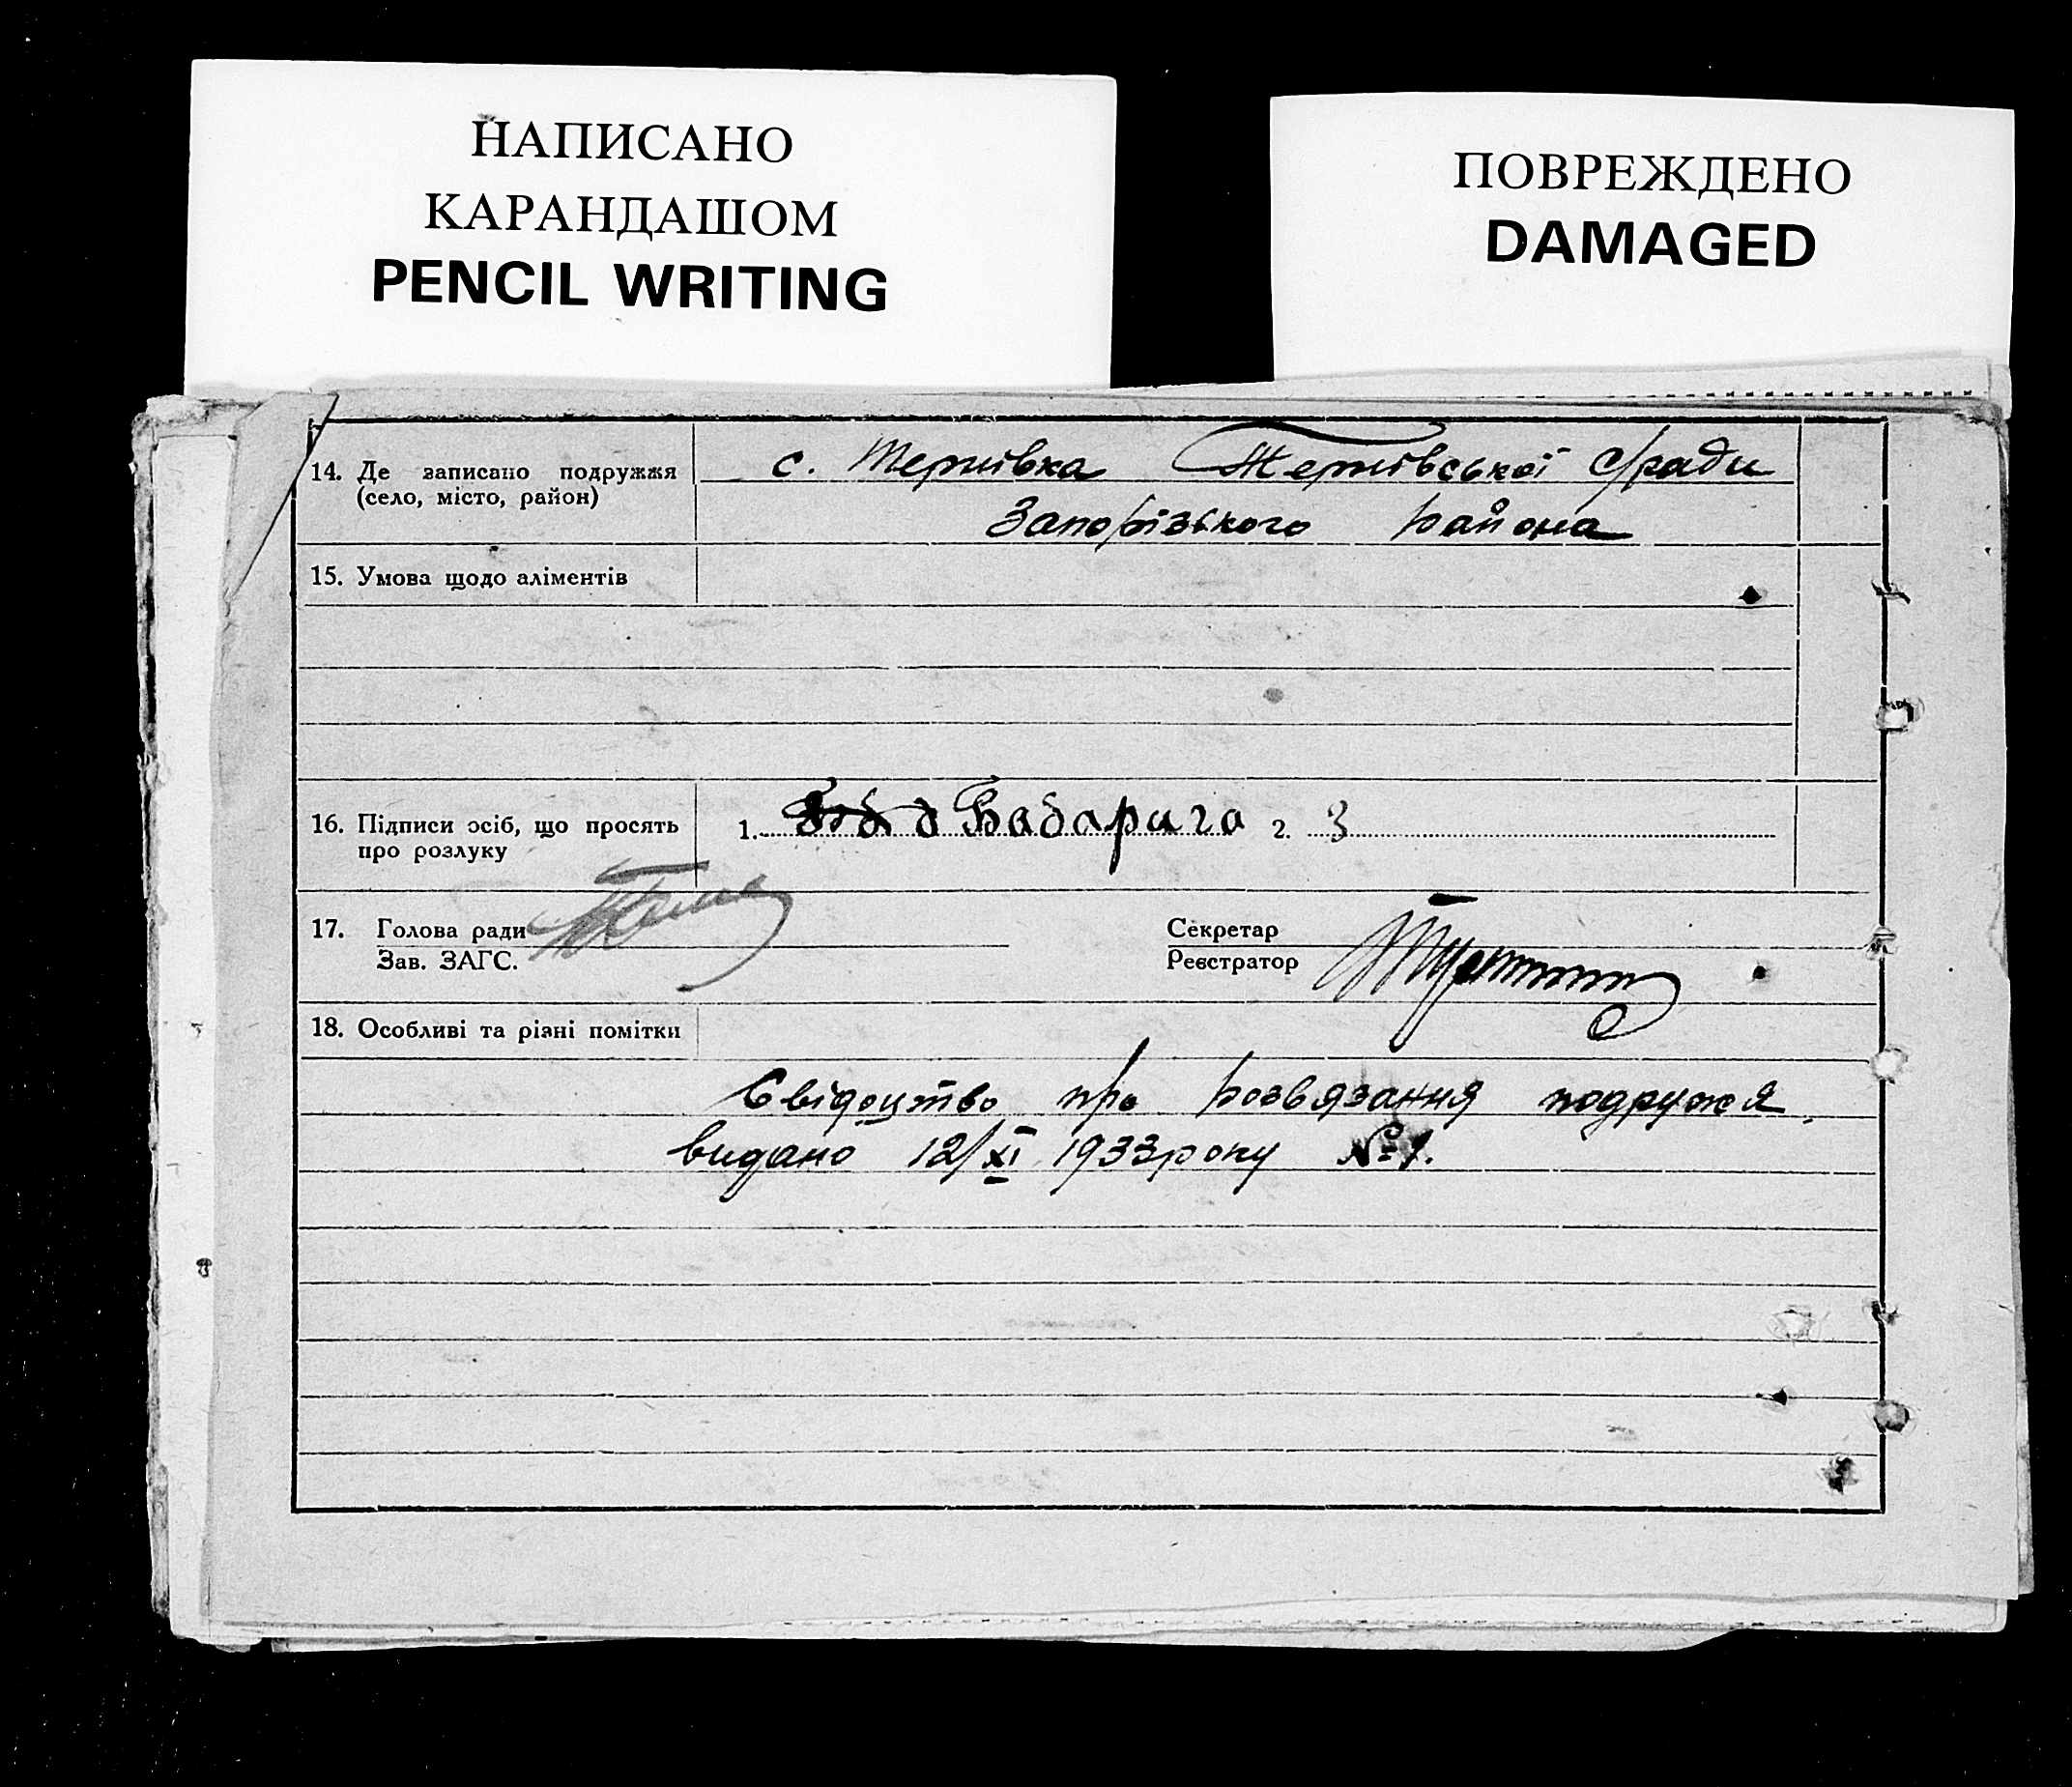 НАПИСАНО
КАРАНДАШОМ
PENCIL WRITING
ПОВРЕЖДЕНО
DAMAGED
14. Де записано подружжя с. Тернівка Тернівської с/ради
(село, місто, район) Запорізького района
15. Умова щодо аліментів
16. Підписи осіб, що просять 1. Бабарига 2. З
про розлуку
17. Голова ради Секретар
Зав. ЗАГС. Реєстратор
18. Особливі та різні помітки
Свідоцтво про розвязання подружжя,
видано 12/XI 1933року № 1.